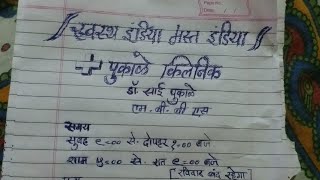 स्वस्थ इंडिया मस्त इंडिया
पुकाळे क्लिनिक
डॉ. साई पुकाळे
एम. बी. बी एस
समय
सुबह ९=०० से. दोपहर १=०० बजे
शाम ५=०० से. रात ९=०० बजे
[रविवार बंद रहेगा]